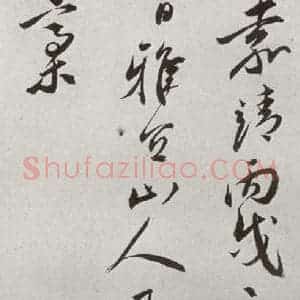 嘉靖丙戌
日雅宜山人
Shufaziliao.COM